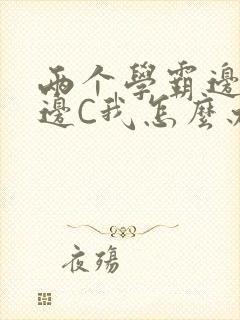 两个學霸邊
邊C我怎麼
夜殤